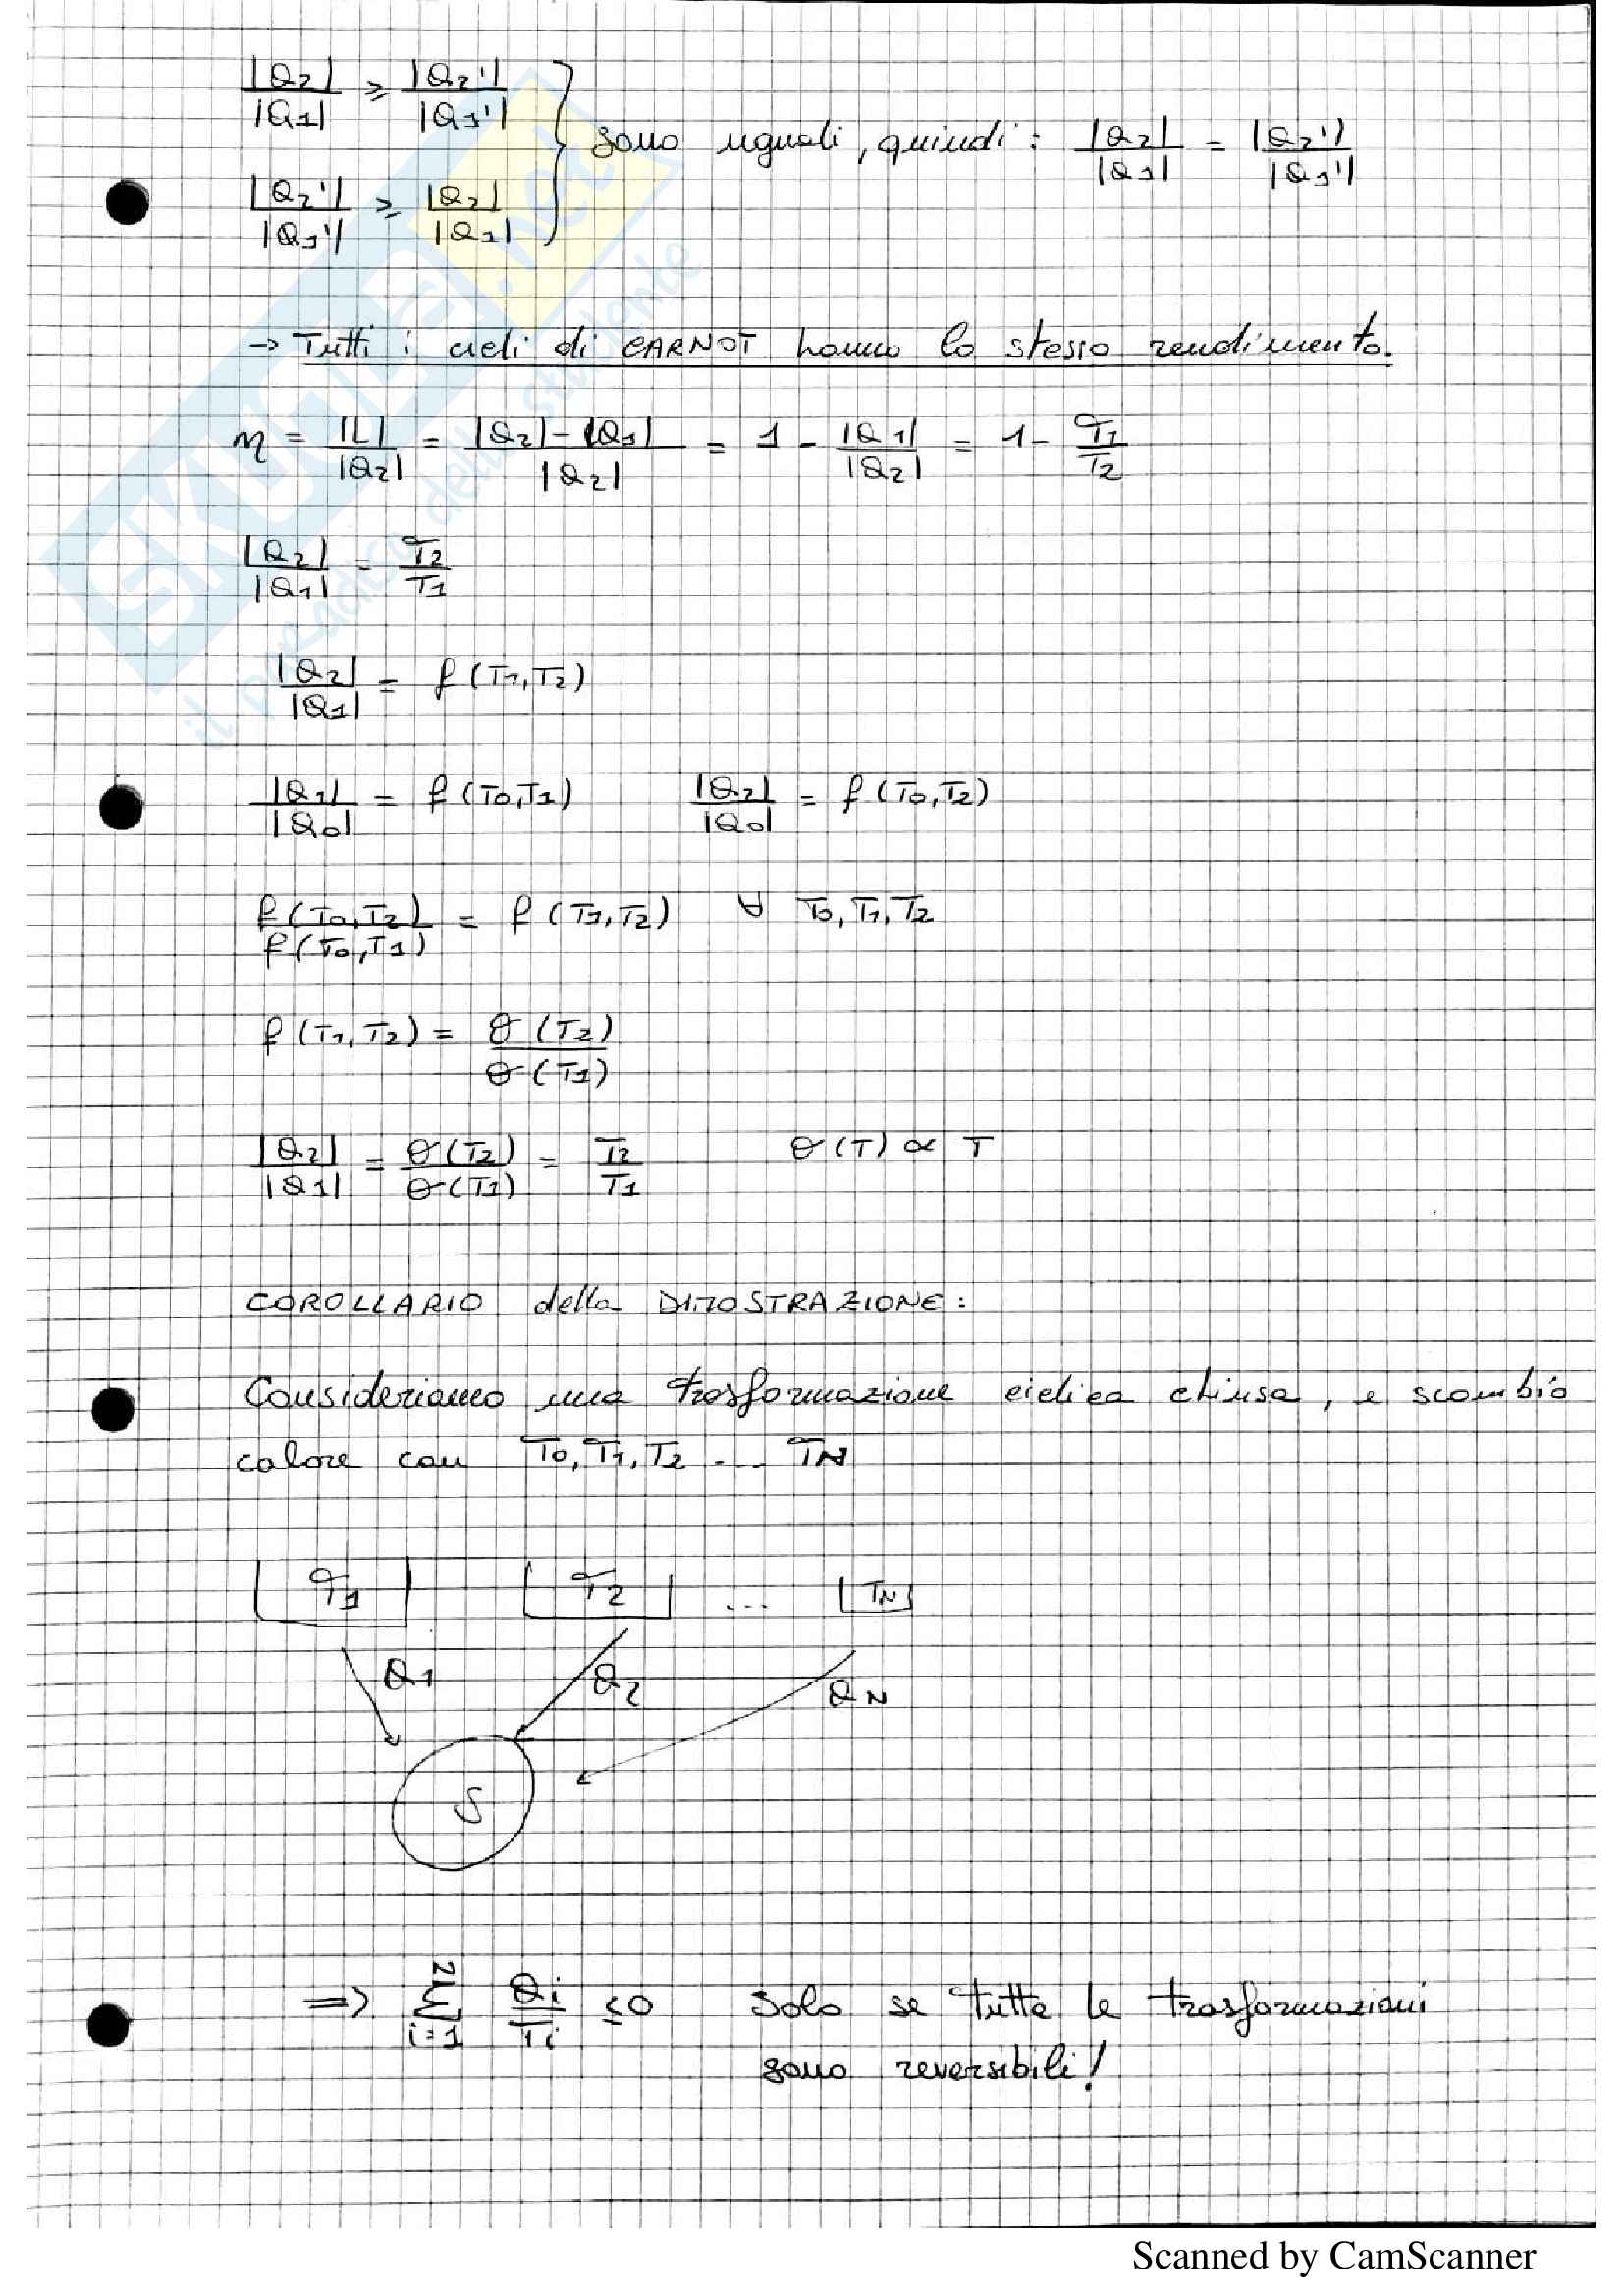 |Q2|/|Q1| ≥ |Q2'|/|Q1'|
|Q2'|/|Q1'| ≥ |Q2|/|Q1|
} sono uguali, quindi: |Q2|/|Q1| = |Q2'|/|Q1'|
→ Tutti i cicli di CARNOT hanno lo stesso rendimento.
η = |L|/|Q2| = |Q2|-|Q1|/|Q2| = 1 - |Q1|/|Q2| = 1 - T1/T2
|Q2|/|Q1| = T2/T1
|Q2|/|Q1| = f(T1,T2)
|Q1|/|Q0| = f(T0,T1) |Q2|/|Q0| = f(T0,T2)
f(T0,T2)/f(T0,T1) = f(T1,T2) ∀ T0,T1,T2
f(T1,T2) = θ(T2)/θ(T1)
|Q2|/|Q1| = θ(T2)/θ(T1) = T2/T1 θ(T) ∝ T
COROLLARIO della DIMOSTRAZIONE:
Consideriamo una trasformazione ciclica chiusa, e scambio
calore con T0,T1,T2 ... TN
T1 T2 ... TN
Q1 Q2 QN
S
=> Σ i=1 N Qi/Ti ≤0 solo se tutte le trasformazioni
sono reversibili!
SKUOLA.net
il paradiso dello studente
Scanned by CamScanner